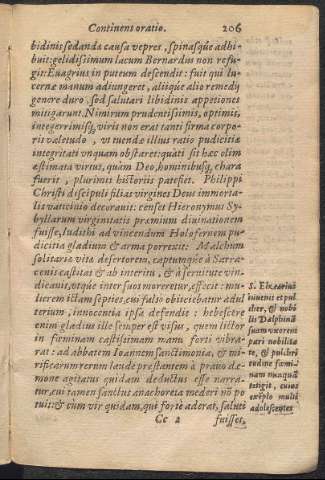 Continens oratio. 206
bidinis sedanda causa vepres, spinasq́ue adhi-
buit: gelidissimum lacum Bernardus non refu-
git: Euagrius in puteum descendit: fuit qui lu-
cernæ manum adiungeret, aliiq́ue alio remedij
genere duro, sed salutari libidinis appetiones
mitigarunt. Nimirum prudentissimis, optimis,
integerrimisq́; viris non erat tanti firma corpo-
ris valetudo, vt tuendæ illius ratio pudicitiæ
integritati vnquam obstaret: quàti sit hæc olim
æstimata virtus, quàm Deo, hominibusq́; chara
fuerit, plurimis historijs patefiet. Philippi
Christi discipuli filias virgines Deus immorta-
lis vaticinio decorauit: censet Hieronymus Sy-
byllarum virginitatis præmium diuinationem
fuisse, Iudithi ad vincendum Holofernem pu-
dicitia gladium & arma porrexit: Malchum
solitaria vita desertorem, captumq́ue à Sarra-
cenis castitas & ab interitu, & à seruitute vin-
dicauit, vtq́ue inter suos moreretur, effecit: mu-
lierem ictam septies, cui falso obiiciebatur adul
terium, innocentia ipsa defendit: hebescere
enim gladius ille semper est visus, quem lictor
in fœminam castissimam manu forti vibra-
rat: ad abbatem Ioannem sanctimonia, & mi-
rificarum rerum laude præstantem à prauo dæ-
mone agitatus quidam deductus esse narra-
tur, cui tamen sanctus anachoreta mederi nō po
tuit: & cùm vir quidam, qui fortè aderat, saluti
Cc 2 fuisset,
S. Elzearius
iuuenis et pul
cher, & nobi
lis Dalphinā
suam vxorem
pari nobilita
te, & pulchri
tudine fœmi-
nam nunquā
tetigit, cuius
exēplo multi
adolescentes